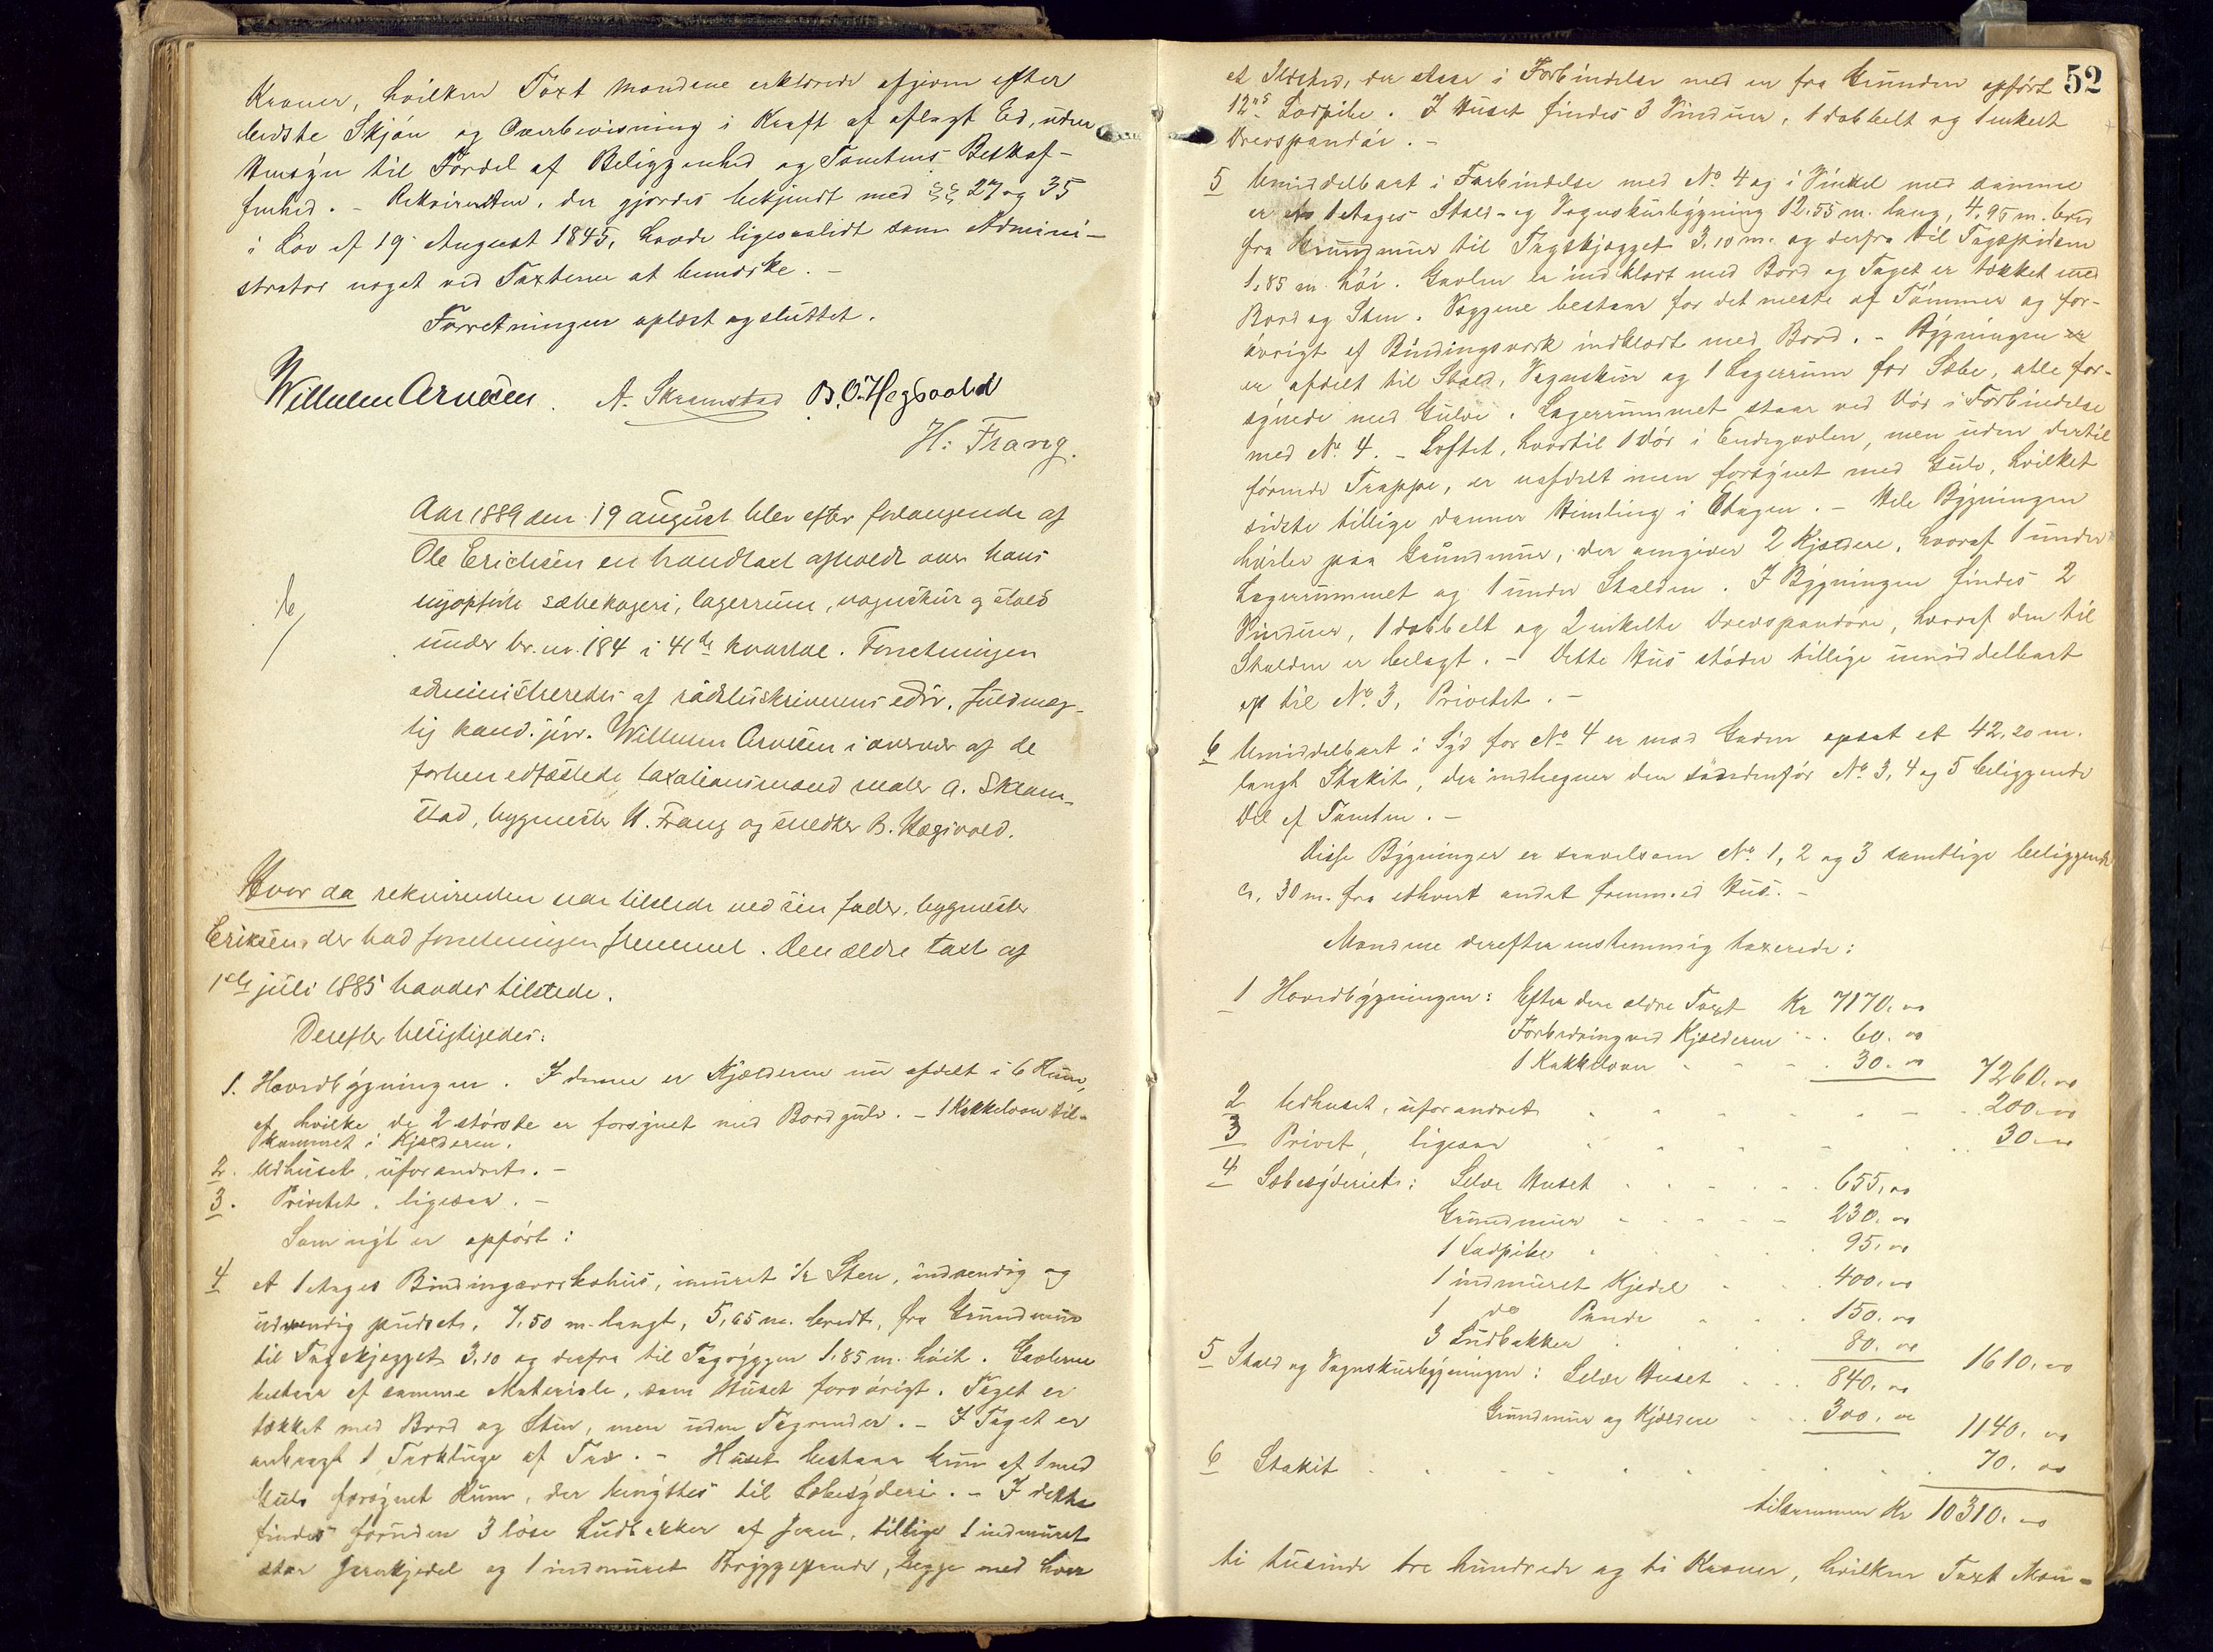 Kroner, hvilken Taxt Mændene erklærede afgiven efter
bedste Skjøn og Overbevisning i Kraft af aflagt Ed, uden
Hensyn til Fordel af Beliggenhed og Tomtens Beskaf-
fenhed. – Rekvirenten, der gjordes bekjendt med §§ 27 og 35
i Lov af 19 August 1845, havde ligesaalidt som Admini-
strator noget ved Taxterne at bemærke. –
Forretningen oplæst og sluttet.
Wilhelm Arnesen. A. Skramstad B. O. Hegsvold
H. Frang.
Aar 1889 den 19 august blev efter forlangende af
Ole Erichsen en brandtaxt afholdt over hans
nyopførte sæbekogeri, lagerrum, vognskur og stald
under br. nr. 184 i 41de kvartal. Forretningen
administreredes af rådstuskriverens edsv. fuldmæg-
tig kand. jur. Wilhelm Arnesen i overvær af de
forhen edfæstede taxationsmænd maler A. Skram-
stad, bygmester H. Frang og snedker B. Hegsvold.
Hvor da rekvirenten var tilstede ved sin fader, bygmester
Eriksen, der bad forretningen fremmet. Den ældre taxt af
1ste juli 1885 havdes tilstede.
Derefter besigtigedes:
1. Hovedbygningen. I denne er Kjælderen nu afdelt i 6 Rum,
af hvilke de 2 største er forsynet med Bordgulv. – 1 Kakkelovn til-
kommet i Kjælderen.
2. Udhuset, uforandret. –
3. Privetet, ligesaa. –
Som nyt er opført:
4 et 1 Etages Bindingsværkshus, imuret ½ Sten, indvendig og
udvendig pudset, 7,50 m. langt, 5,65 m. bredt, fra Grundmur
til Tagskjægget 3,10 og derfra til Tagryggen 1,85 m. høit. Gavlerne
bestaar af samme Materiale, som Huset forøvrigt. Taget er
tækket med Bord og Sten, men uden Tagrender. – I Taget er
anbragt 1 Takluge af Træ. – Huset bestaar kun af 1 med
Gulv forsynet Rum, der benyttes til Sæbesyderi. – I dette
findes foruden 3 løse Ludbakker af Jern, tillige 1 indmuret
stor Jernkjedel og 1 indmuret Bryggepande, begge med hver
52
et Ildsted, der staar i Forbindelse med en fra Grunden opført
12" Ladpibe. I Huset findes 3 Vinduer, 1 dobbelt og 1 enkelt
Drevspandør. –
5 Umiddelbart i Forbindelse med No. 4 og i Vinkel med samme
er 1 Etages Stald- og Vognskurbygning 12,55 m. lang, 4,95 m. bred
fra Grundmur til Tagskjægget 3,10 m. og derfra til Tagspidsen
1,85 m. høi. Gavlen er indklædt med Bord og Taget er tækket med
Bord og Sten. Væggene bestaar for det meste af Tømmer og for-
øvrigt af Bindingsværk indklædt med Bord. – Bygningen
er afdelt til Stald, Vognskur og 1 Lagerrum for Sæbe, alle for-
synede med Gulve. Lagerrummet staar ved Dør i Forbindelse
med No. 4. – Loftet, hvortil 1 Dør i Endegavlen, men uden dertil
førende Trappe, er uafdelt men forsynet med Gulv, hvilket
sidste tillige danner Himling i Etagen. – Hele Bygningen
hviler paa Grundmur, der omgiver 2 Kjældere, hvoraf 1 under
Lagerrummet og 1 under Stalden. I Bygningen findes 2
Vinduer, 1 dobbelt og 2 enkelte Drevspandøre, hvoraf den til
Stalden er belagt. – Dette Hus støder tillige umiddelbart
op til No. 3, Privetet. –
6 Umiddelbart i Syd for No. 4 er mod Gaden opsat et 42,20 m.
langt Stakit, der indhegner den søndenfor No. 3, 4 og 5 beliggende
Del af Tomten. –
Disse Bygninger er saavelsom No. 1, 2 og 3 samtlige beliggende
ca. 30 m. fra ethvert andet fremmed Hus. –
Mændene derefter enstemmig taxerede:
1 Hovedbygningen: Efter den ældre Taxt Kr 7170.00
Forbedring ved Kjælderen . . 60.00
1 Kakkelovn . . . 30.00 7260.00
2 Udhuset, uforandret . . . 200.00
3 Privet, ligesaa . . . 30.00
4 Sæbesyderiet: Selve Huset . . . 655.00
Grundmur . . . 230.00
1 Ladpibe . . . 95.00
1 indmuret Kjedel . . 400.00
1 do Pande . . . 150.00
3 Ludbakker . . . 80.00 1610.00
5 Stald og Vognskurbygningen: Selve Huset . . . 840.00
Grundmur og Kjældere . . 300.00 1140.00
6 Stakit . . . 70.00
tilsammen Kr 10310.00
ti tusinde tre hundrede og ti Kroner, hvilken Taxt Mæn-